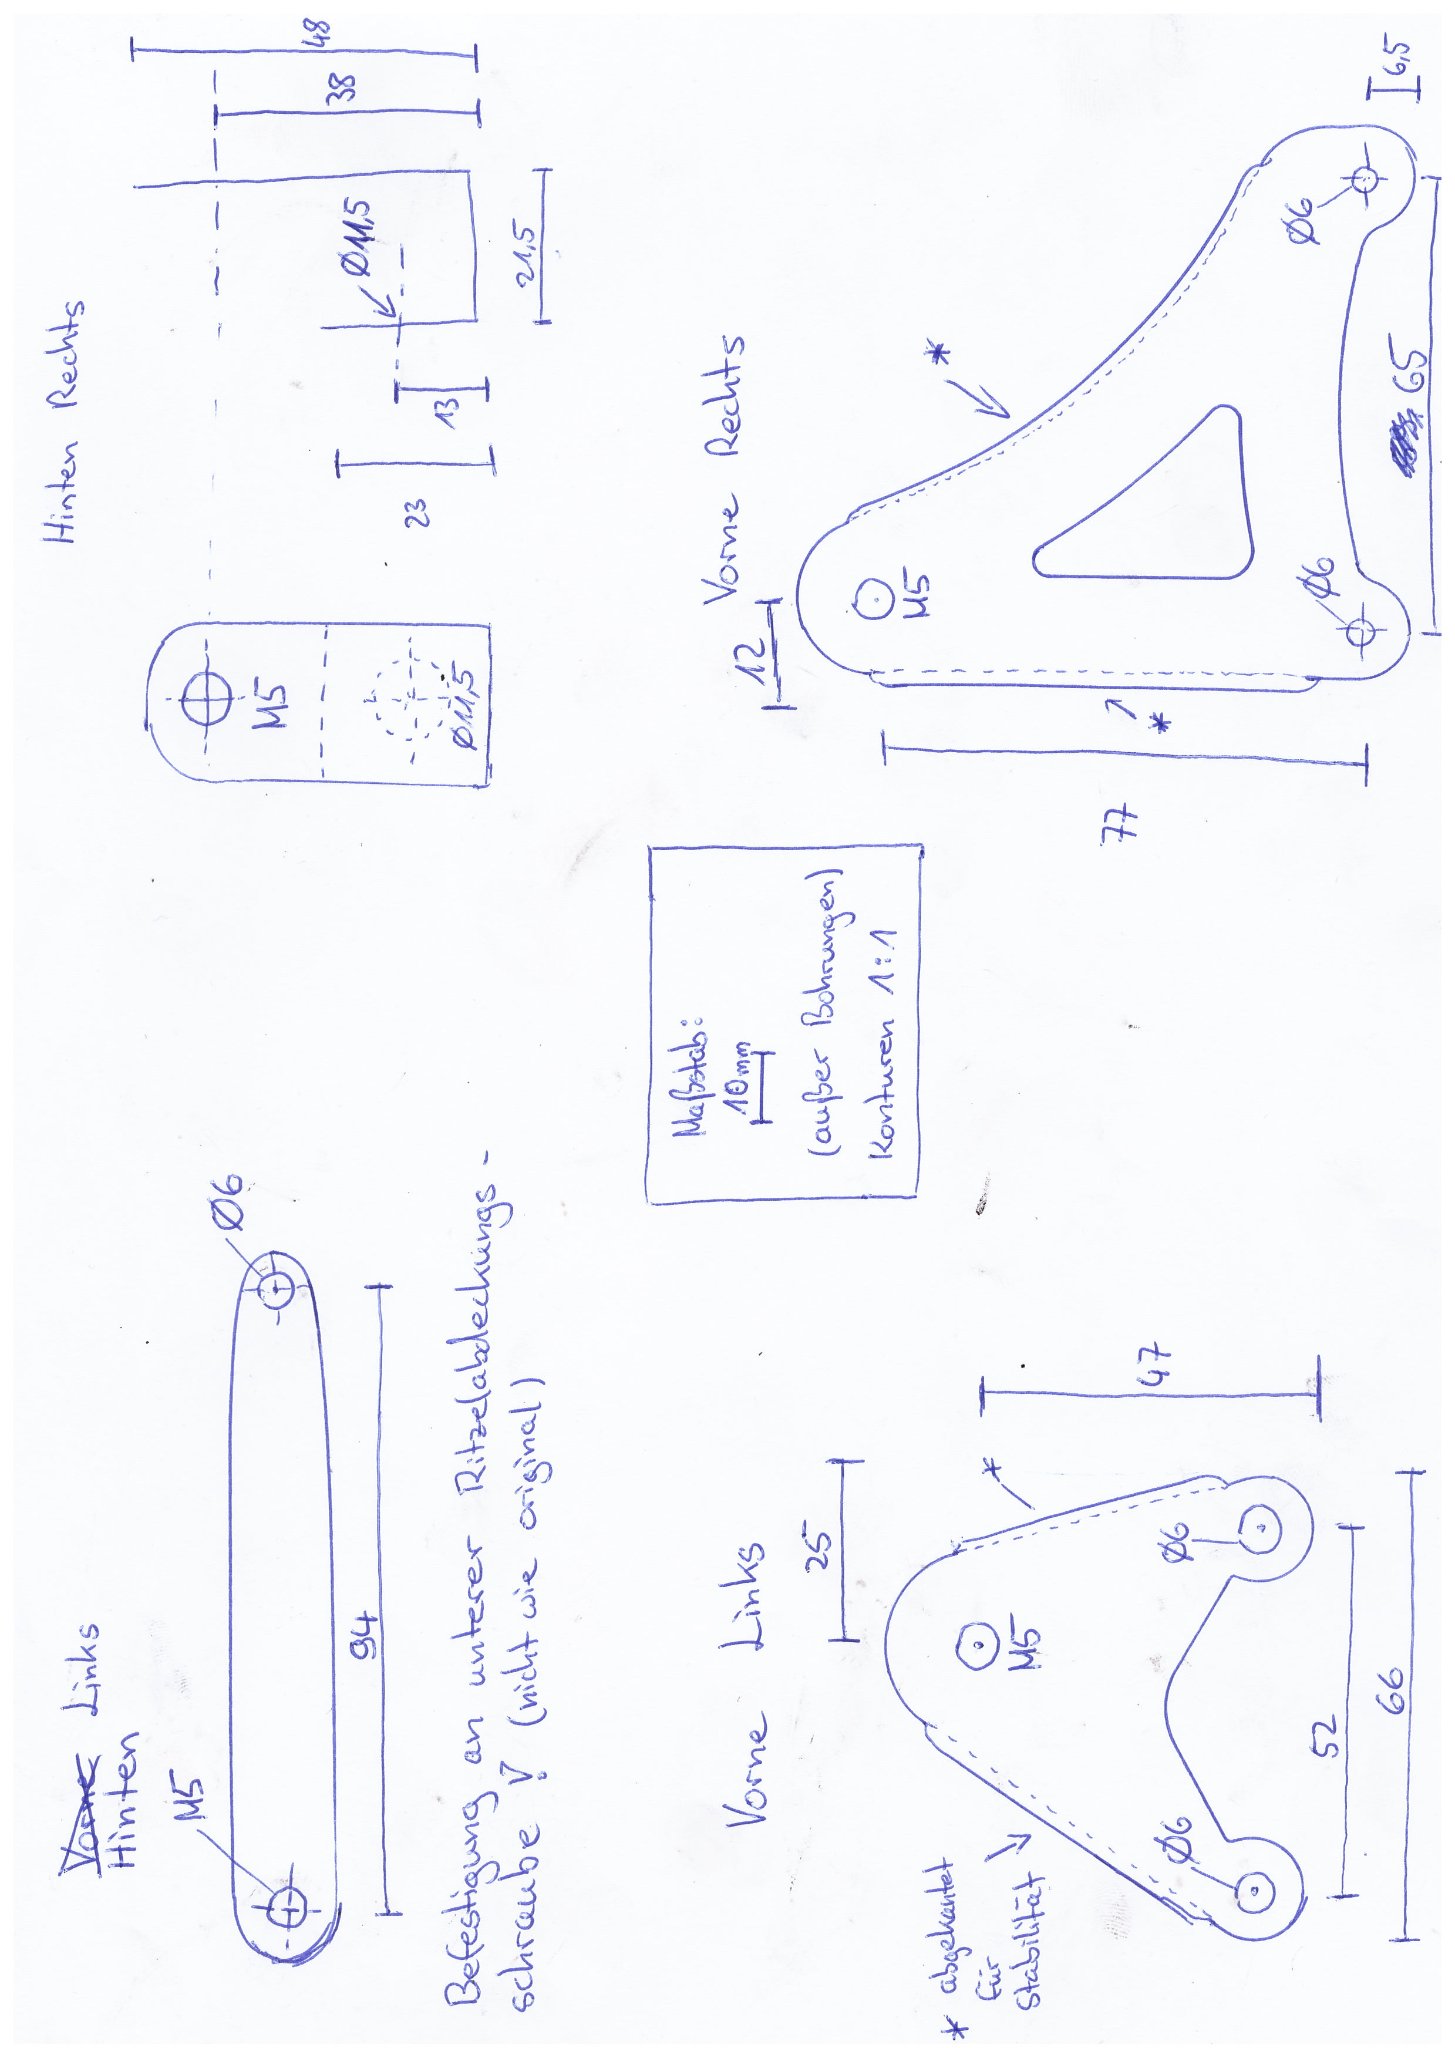 Vorne Links
Hinten
M5
Ø6
94
Befestigung an unterer Ritzelabdeckungs-
schraube ! (nicht wie original)
Hinten Rechts
M5
Ø11,5
Ø11,5
48
38
21,5
13
23
Maßstab:
10mm
(außer Bohrungen)
Konturen 1:1
Vorne Links
25
47
M5
Ø6
Ø6
52
66
*
* abgekantet
für
Stabilität
Vorne Rechts
12
M5
Ø6
Ø6
*
*
77
65
6,5